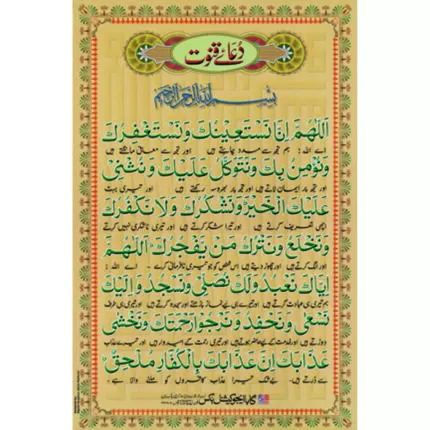 دُعائے قنوت
بِسْمِ اللهِ الرَّحْمٰنِ الرَّحِيْمِ
اَللّٰهُمَّ اِنَّا نَسْتَعِيْنُكَ وَنَسْتَغْفِرُكَ
اے اللہ! ہم تجھ سے مدد چاہتے ہیں اور تجھ سے معافی مانگتے ہیں
وَنُؤْمِنُ بِكَ وَنَتَوَكَّلُ عَلَيْكَ وَنُثْنِيْ
اور تجھ پر ایمان لاتے ہیں اور تجھ پر بھروسہ رکھتے ہیں اور تیری بہت
عَلَيْكَ الْخَيْرَ وَنَشْكُرُكَ وَلَا نَكْفُرُكَ
اچھی تعریف کرتے ہیں اور تیرا شکر کرتے ہیں اور تیری ناشکری نہیں کرتے
وَنَخْلَعُ وَنَتْرُكُ مَنْ يَّفْجُرُكَ اَللّٰهُمَّ
اور الگ کرتے ہیں اور چھوڑ دیتے ہیں اس شخص کو جو تیری نافرمانی کرے اے اللہ!
اِيَّاكَ نَعْبُدُ وَلَكَ نُصَلِّيْ وَنَسْجُدُ وَاِلَيْكَ
ہم تیری ہی عبادت کرتے ہیں اور تیرے ہی لیے نماز پڑھتے اور سجدہ کرتے ہیں اور تیری ہی طرف
نَسْعٰى وَنَحْفِدُ وَنَرْجُوْا رَحْمَتَكَ وَنَخْشٰى
دوڑتے ہیں اور خدمت کے لیے حاضر ہوتے ہیں اور تیری رحمت کے امیدوار ہیں اور تیرے عذاب
عَذَابَكَ اِنَّ عَذَابَكَ بِالْكُفَّارِ مُلْحِقٌ
سے ڈرتے ہیں۔ بے شک تیرا عذاب کافروں کو ملنے والا ہے۔